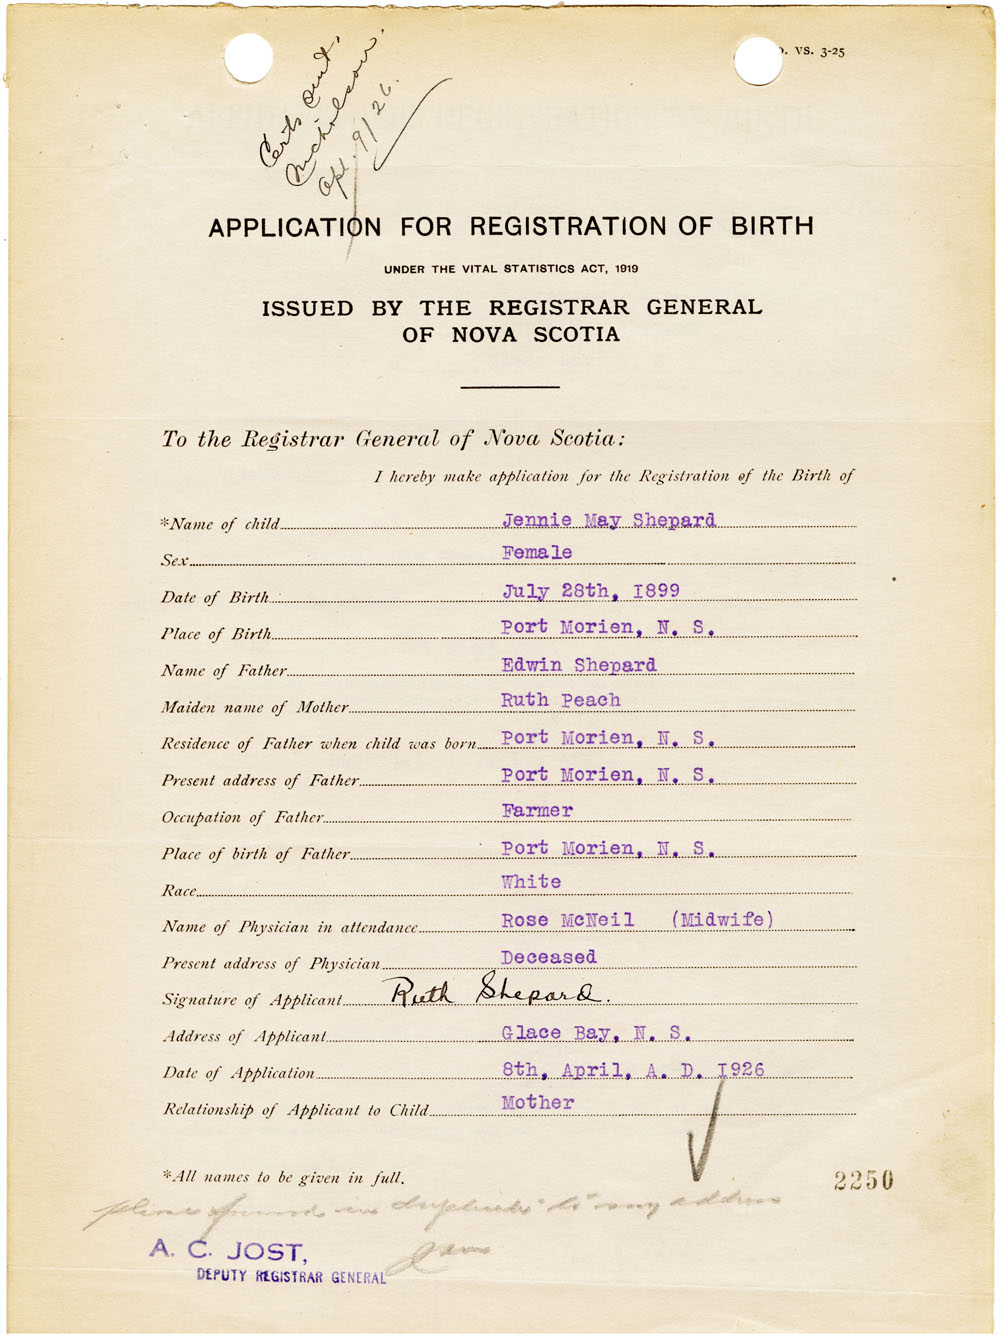 Certs sent.
Nicholson.
Apl. 9/26.
. VS. 3-25
APPLICATION FOR REGISTRATION OF BIRTH
UNDER THE VITAL STATISTICS ACT, 1919
ISSUED BY THE REGISTRAR GENERAL
OF NOVA SCOTIA
To the Registrar General of Nova Scotia:
I hereby make application for the Registration of the Birth of
*Name of child Jennie May Shepard
Sex Female
Date of Birth July 28th, I899
Place of Birth Port Morien, N. S.
Name of Father Edwin Shepard
Maiden name of Mother Ruth Peach
Residence of Father when child was born Port Morien, N. S.
Present address of Father Port Morien, N. S.
Occupation of Father Farmer
Place of birth of Father Port Morien, N. S.
Race White
Name of Physician in attendance Rose McNeil (Midwife)
Present address of Physician Deceased
Signature of Applicant Ruth Shepard.
Address of Applicant Glace Bay, N. S.
Date of Application 8th, April, A. D. I926
Relationship of Applicant to Child Mother
*All names to be given in full.
2250
please in duplicate to my address
A. C. JOST,
DEPUTY REGISTRAR GENERAL